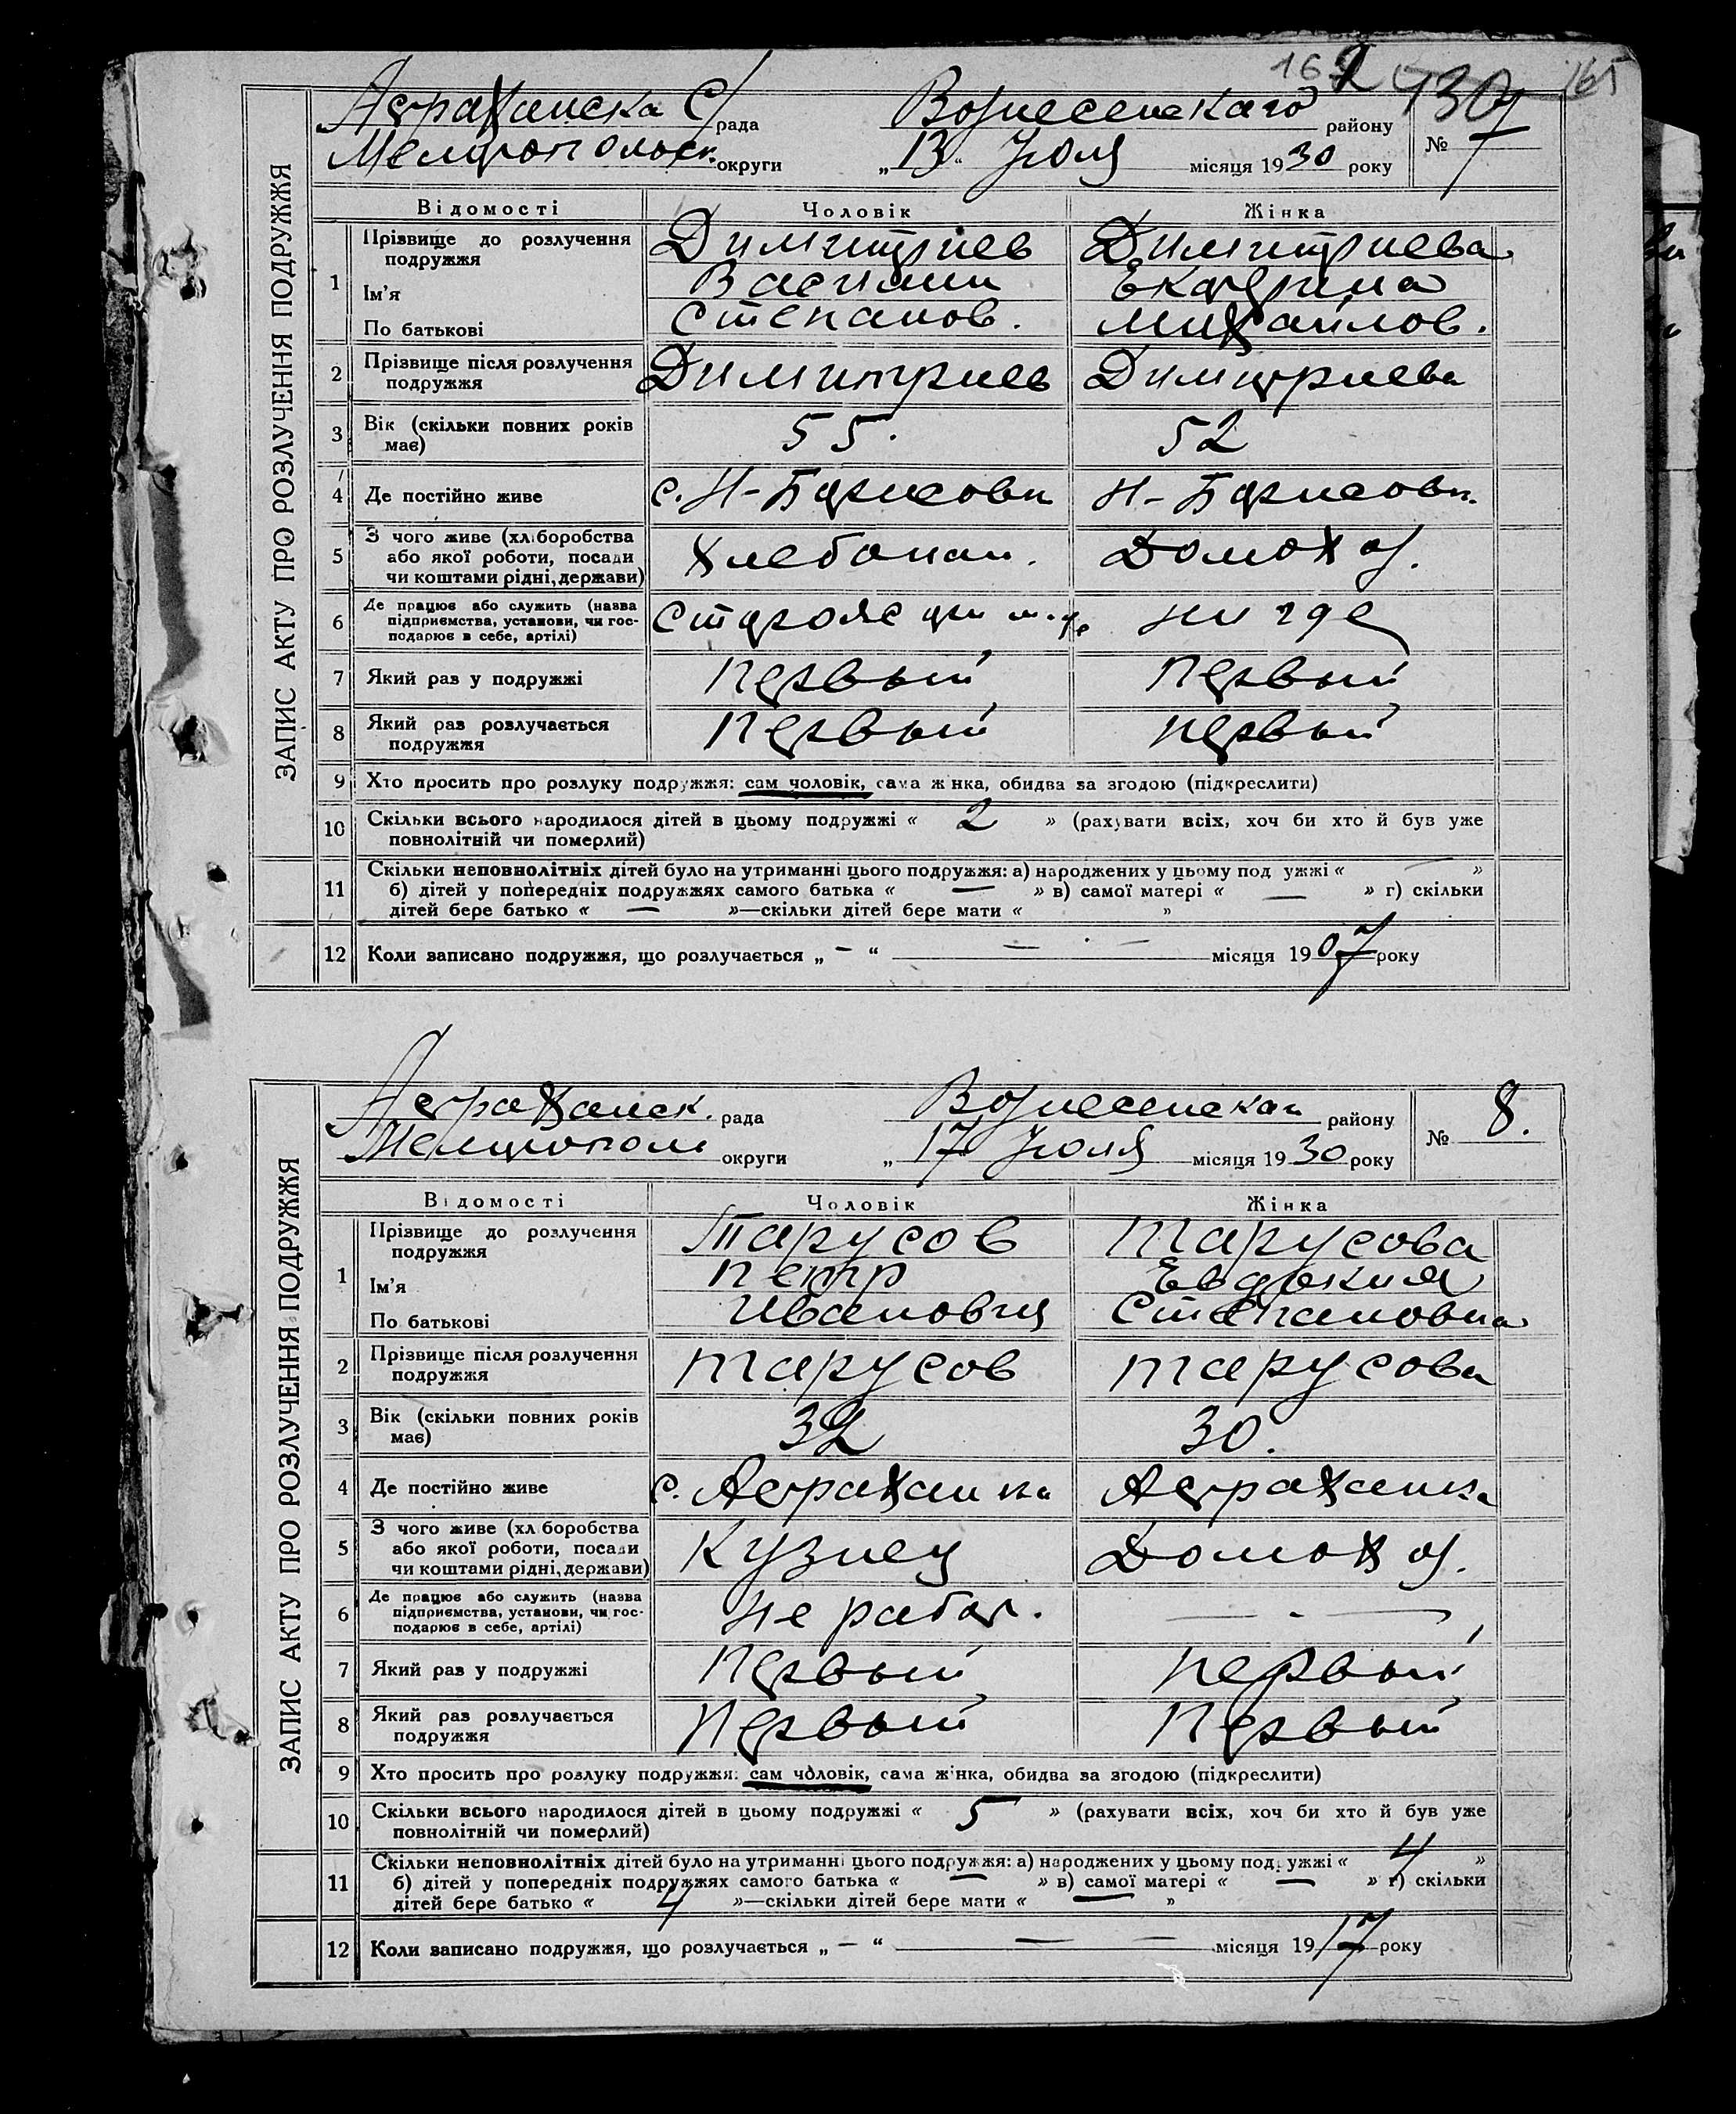 162 130 165
ЗАПИС АКТУ ПРО РОЗЛУЧЕННЯ ПОДРУЖЖЯ
Астраханска С/рада Вознесенскаго району № 7
Мелитопольск. округи „13“ Июля місяця 1930 року
Відомості Чоловік Жінка
1 Прізвище до розлучення подружжя Димитриев Димитриева
Ім'я Васили Екатерина
По батькові Степанов. Михайлов.
2 Прізвище після розлучення подружжя Димитриев Димитриева
3 Вік (скільки повних років має) 55. 52
4 Де постійно живе с. Н-Борисовк Н-Борисовк.
5 З чого живе (хліборобства або якої роботи, посади чи коштами рідні, держави) Хлебопаш. Домохоз.
6 Де працює або служить (назва підприємства, установи, чи господарює в себе, артілі) нигде
7 Який раз у подружжі первый первый
8 Який раз розлучається подружжя первый первый
9 Хто просить про розлуку подружжя: сам чоловік, сама жінка, обидва за згодою (підкреслити)
10 Скільки всього народилося дітей в цьому подружжі « 2 » (рахувати всіх, хоч би хто й був уже
повнолітній чи померлий)
11 Скільки неповнолітніх дітей було на утриманні цього подружжя: а) народжених у цьому подружжі « — »
б) дітей у попередніх подружжях самого батька « — » в) самої матері « — » г) скільки
дітей бере батько « — »—скільки дітей бере мати « »
12 Коли записано подружжя, що розлучається „ — “ — · — місяця 1907 року
ЗАПИС АКТУ ПРО РОЗЛУЧЕННЯ ПОДРУЖЖЯ
Астраханск. рада Вознесенскаго району № 8.
Мелитополь округи „17 Июля місяця 1930 року
Відомості Чоловік Жінка
1 Прізвище до розлучення подружжя Тарусов Тарусова
Ім'я Петр Евдокия
По батькові Иванович Степановна
2 Прізвище після розлучення подружжя Тарусов Тарусова
3 Вік (скільки повних років має) 32 30.
4 Де постійно живе с. Астраханка Астраханка
5 З чого живе (хліборобства або якої роботи, посади чи коштами рідні, держави) Кузнец Домохоз.
6 Де працює або служить (назва підприємства, установи, чи господарює в себе, артілі) не работ. — · —
7 Який раз у подружжі Первый первый
8 Який раз розлучається подружжя Первый Первый
9 Хто просить про розлуку подружжя: сам чоловік, сама жінка, обидва за згодою (підкреслити)
10 Скільки всього народилося дітей в цьому подружжі « 5 » (рахувати всіх, хоч би хто й був уже
повнолітній чи померлий)
11 Скільки неповнолітніх дітей було на утриманні цього подружжя: а) народжених у цьому подружжі « 4 »
б) дітей у попередніх подружжях самого батька « — » в) самої матері « — » г) скільки
дітей бере батько « 4 »—скільки дітей бере мати « — »
12 Коли записано подружжя, що розлучається „ — “ — — місяця 1917 року